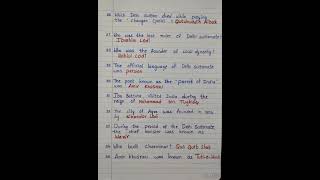 26 Which Delhi sultan died while playing
the "Chaugan (polo) : Qutubuddin Aibak
27 Who was the last ruler of Delhi sultanate
Ibrahim Lodi
28 Who was the founder of Lodi dynasty?
Bahlul Lodi
29 The official language of Delhi sultanate
was persian
30 The poet known as the "parrot of India"
was Amir Khusrau
31 Ibn Battuta visited India during the
reign of Mohammad bin Tughlaq
32 The city of Agra was founded in 1504
by Sikandar Lodi
33 During the period of the Delhi Sultanate
the chief minister was known as
Wazir
34 Who built Charminar? Quli Qutb Shah
35 Amir Khusrau was known as Tuti-e-Hind